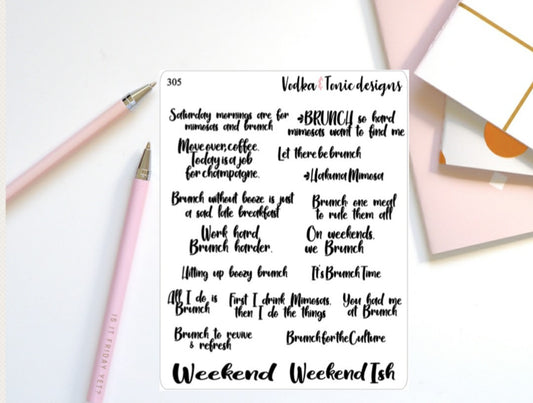 305
Vodka & Tonic designs
Saturday mornings are for
mimosas and brunch
#BRUNCH so hard
mimosas want to find me
Move over, coffee.
Today is a job
for champagne.
Let there be brunch
#Hakuna Mimosa
Brunch without booze is just
a sad, late breakfast
Brunch one meal
to rule them all
Work hard,
Brunch harder.
On weekends,
we Brunch
Hitting up boozy brunch
It's Brunch Time
All I do is
Brunch
First I drink Mimosas,
then I do the things
You had me
at Brunch
Brunch to revive
& refresh
Brunch for the Culture
Weekend
Weekend Ish
IS IT FRIDAY YET?